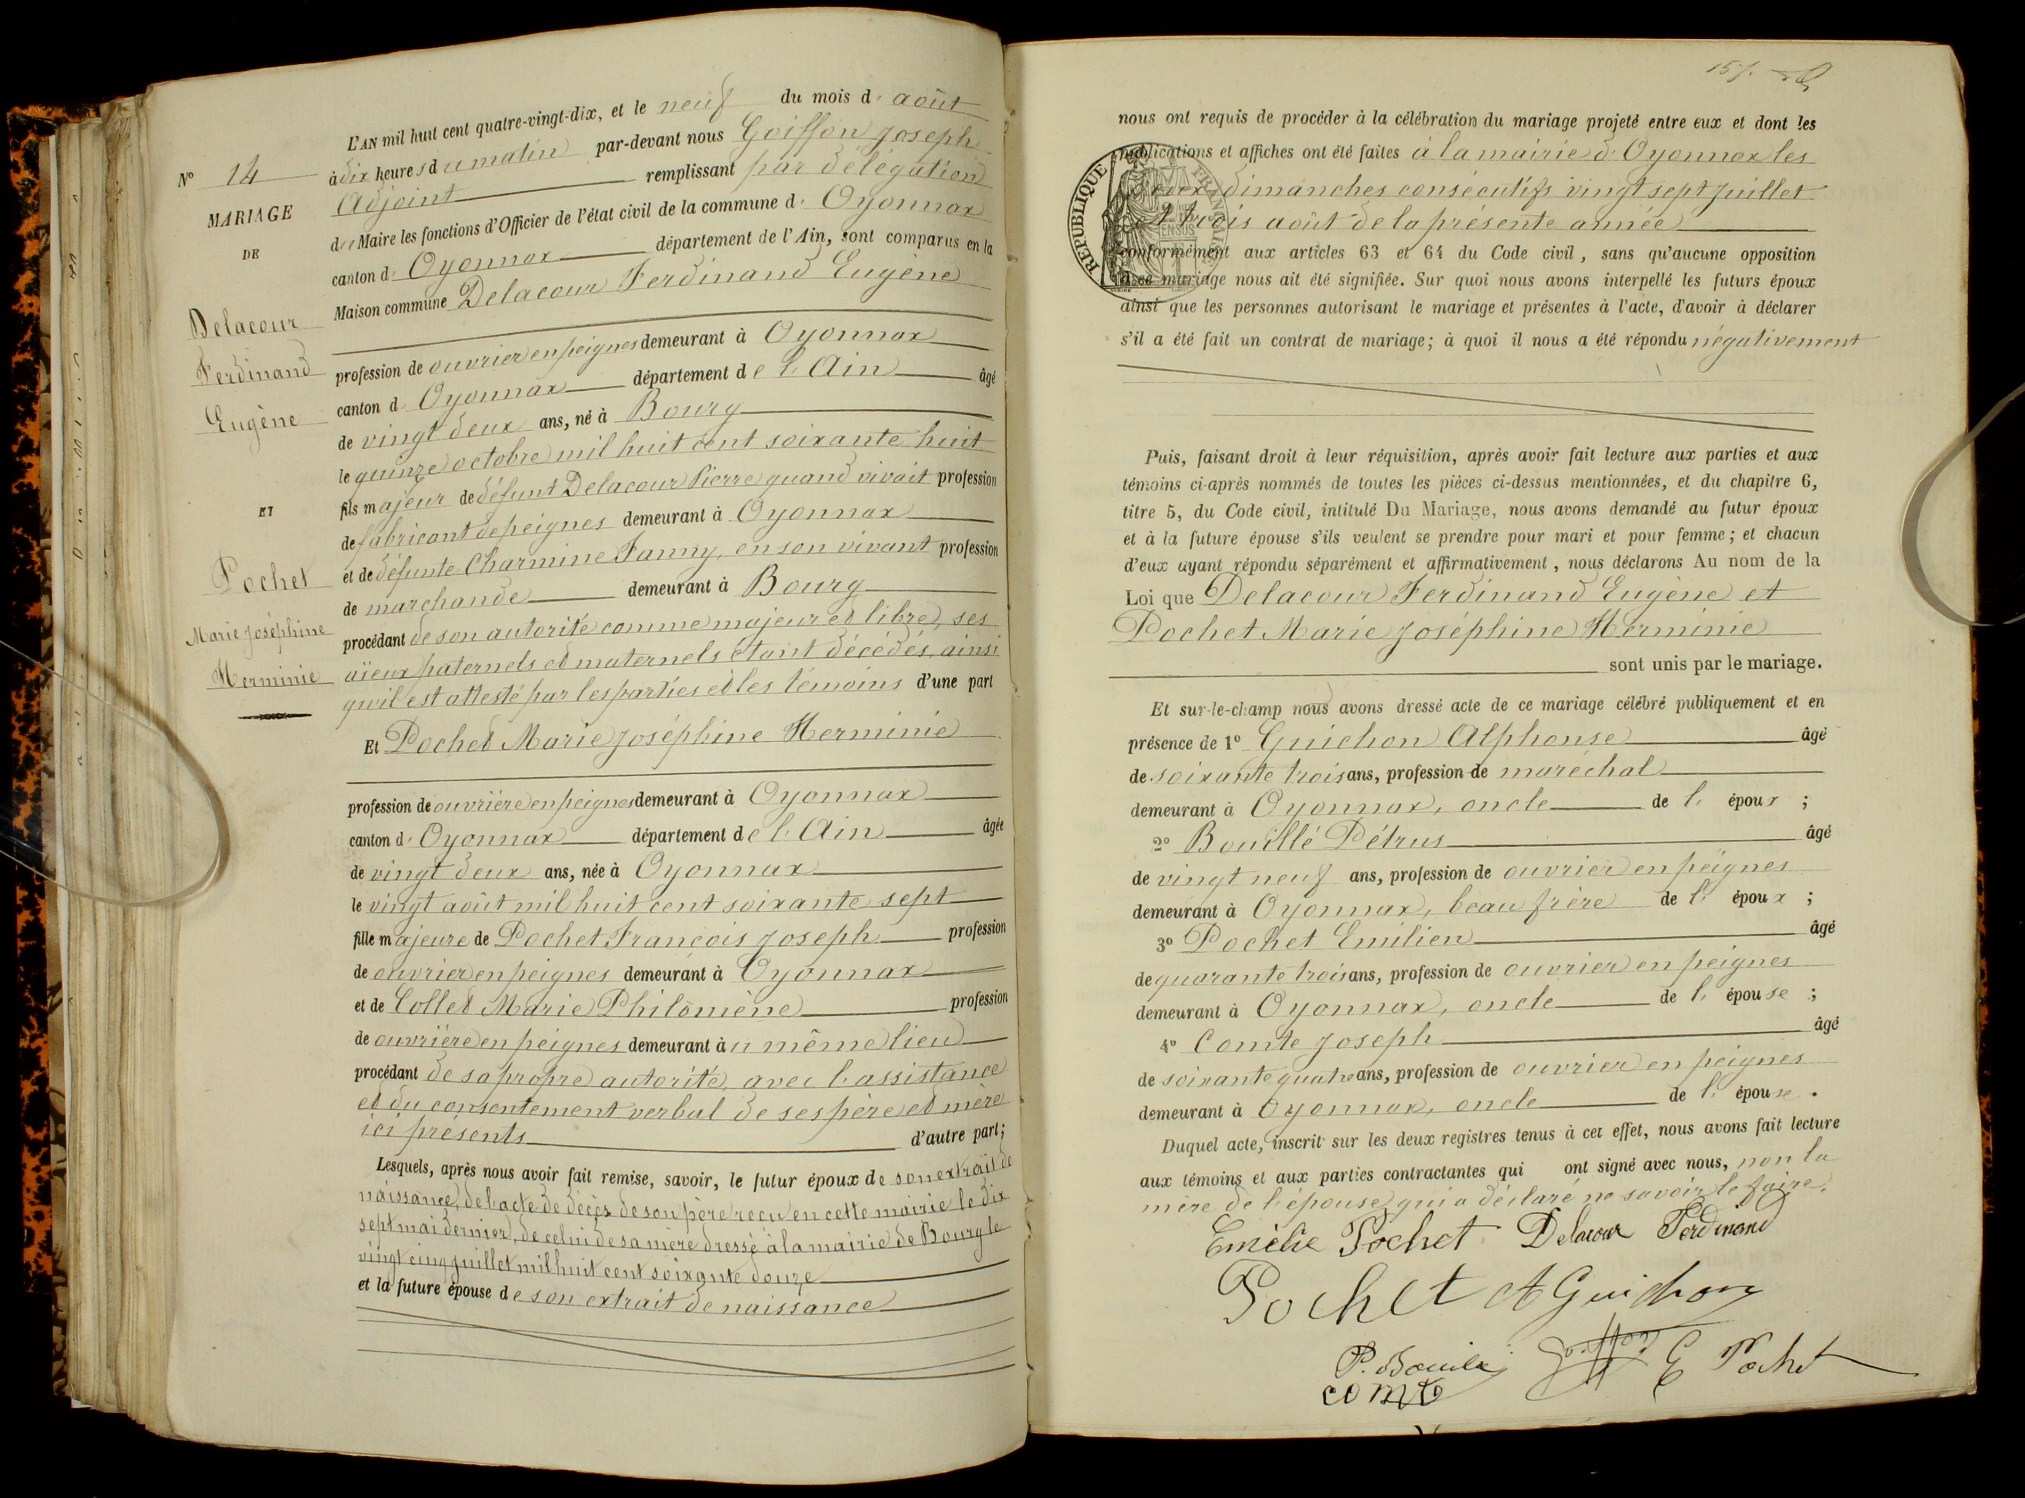 L'AN mil huit cent quatre-vingt-dix, et le neuf du mois d' août
à dix heures du matin par-devant nous Goiffon Joseph
Adjoint remplissant par délégation
du Maire les fonctions d'Officier de l'état civil de la commune d' Oyonnax
canton d' Oyonnax département de l'Ain, sont comparus en la
Maison commune Delacour Ferdinand Eugène
profession de ouvrier en peignes demeurant à Oyonnax
canton d' Oyonnax département de l'Ain âgé
de vingt deux ans, né à Bourg
le quinze octobre mil huit cent soixante huit
fils majeur de défunt Delacour Pierre quand vivait profession
de fabricant de peignes demeurant à Oyonnax
et de défunte Charmine Fanny, en son vivant profession
de marchande demeurant à Bourg
procédant de son autorité comme majeur et libre, ses
aïeux paternels et maternels étant décédés, ainsi
qu'il est attesté par les parties et les témoins d'une part
Et Pochet Marie Joséphine Herminie
profession de ouvrière en peignes demeurant à Oyonnax
canton d' Oyonnax département de l'Ain âgée
de vingt deux ans, née à Oyonnax
le vingt août mil huit cent soixante sept
fille majeure de Pochet François Joseph profession
de ouvrier en peignes demeurant à Oyonnax
et de Collet Marie Philomène profession
de ouvrière en peignes demeurant au même lieu
procédant de sa propre autorité, avec l'assistance
et du consentement verbal de ses père et mère
ici présents d'autre part;
Lesquels, après nous avoir fait remise, savoir, le futur époux de son extrait de
naissance, de l'acte de décès de son père reçu en cette mairie le dix
sept mai dernier, de celui de sa mère dressé à la mairie de Bourg le
vingt cinq juillet mil huit cent soixante douze
et la future épouse de son extrait de naissance
N° 14
MARIAGE
DE
Delacour
Ferdinand
Eugène
ET
Pochet
Marie Joséphine
Herminie
157.
nous ont requis de procéder à la célébration du mariage projeté entre eux et dont les
publications et affiches ont été faites à la mairie d'Oyonnax les
deux dimanches consécutifs vingt sept juillet
et trois août de la présente année
conformément aux articles 63 et 64 du Code civil, sans qu'aucune opposition
à ce mariage nous ait été signifiée. Sur quoi nous avons interpellé les futurs époux
ainsi que les personnes autorisant le mariage et présentes à l'acte, d'avoir à déclarer
s'il a été fait un contrat de mariage; à quoi il nous a été répondu négativement
RÉPUBLIQUE FRANÇAISE
Puis, faisant droit à leur réquisition, après avoir fait lecture aux parties et aux
témoins ci-après nommés de toutes les pièces ci-dessus mentionnées, et du chapitre 6,
titre 5, du Code civil, intitulé Du Mariage, nous avons demandé au futur époux
et à la future épouse s'ils veulent se prendre pour mari et pour femme; et chacun
d'eux ayant répondu séparément et affirmativement, nous déclarons Au nom de la
Loi que Delacour Ferdinand Eugène et
Pochet Marie Joséphine Herminie
sont unis par le mariage.
Et sur-le-champ nous avons dressé acte de ce mariage célébré publiquement et en
présence de 1° Guichon Alphonse âgé
de soixante trois ans, profession de maréchal
demeurant à Oyonnax, oncle de l' époux ;
2° Bouillé Pétrus âgé
de vingt neuf ans, profession de ouvrier en peignes
demeurant à Oyonnax, beau frère de l' époux ;
3° Pochet Emilien âgé
de quarante trois ans, profession de ouvrier en peignes
demeurant à Oyonnax, oncle de l' épouse ;
4° Comte Joseph âgé
de soixante quatre ans, profession de ouvrier en peignes
demeurant à Oyonnax, oncle de l' épouse .
Duquel acte, inscrit sur les deux registres tenus à cet effet, nous avons fait lecture
aux témoins et aux parties contractantes qui ont signé avec nous, non la
mère de l'épouse qui a déclaré ne savoir le faire.
Emélie Pochet Delacour Ferdinand
Pochet A Guichon
P. Bouillé Goiffon E Pochet
comte